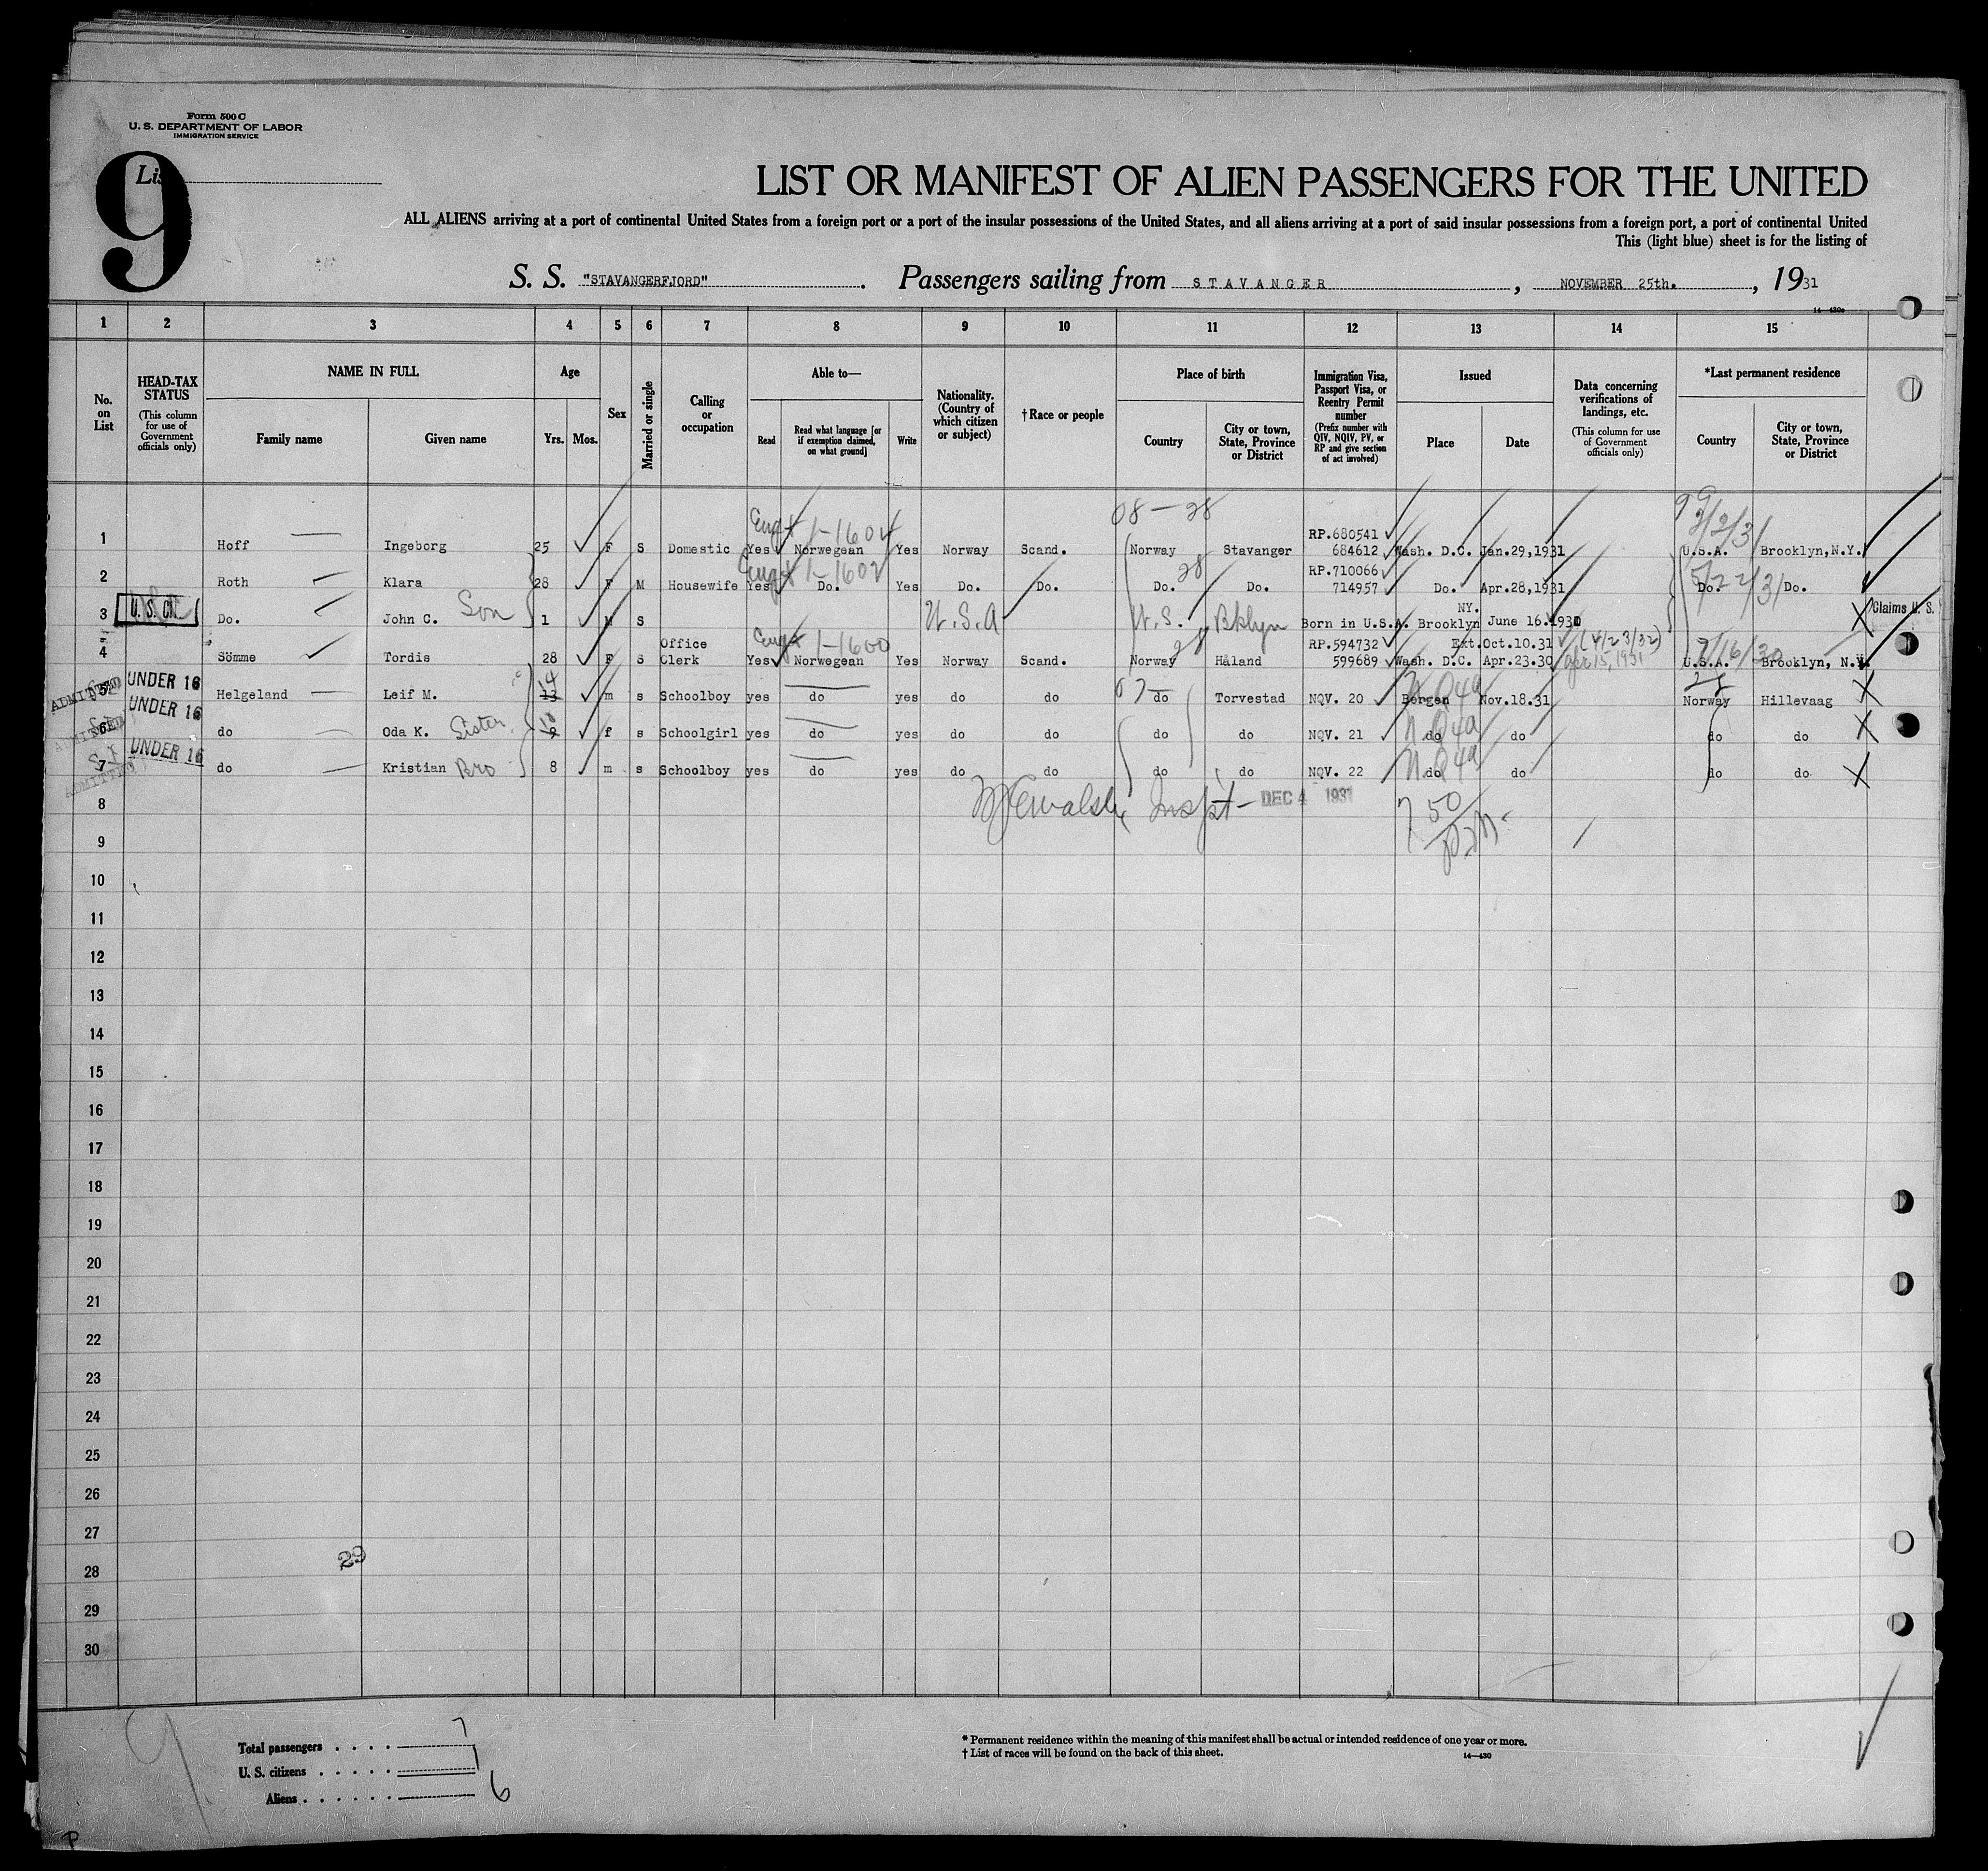 Form 500 C
U. S. DEPARTMENT OF LABOR
IMMIGRATION SERVICE
9
LIST OR MANIFEST OF ALIEN PASSENGERS FOR THE UNITED
ALL ALIENS arriving at a port of continental United States from a foreign port or a port of the insular possessions of the United States, and all aliens arriving at a port of said insular possessions from a foreign port, a port of continental United
This (light blue) sheet is for the listing of
S. S. "STAVANGERFJORD". Passengers sailing from STAVANGER, NOVEMBER 25th., 1931
1 2 3 4 5 6 7 8 9 10 11 12 13 14 15
No. on List
HEAD-TAX STATUS
(This column for use of Government officials only)
NAME IN FULL
Family name
Given name
Age
Yrs. Mos.
Sex
Married or single
Calling or occupation
Able to—
Read
Read what language [or if exemption claimed, on what ground]
Write
Nationality. (Country of which citizen or subject)
†Race or people
Place of birth
Country
City or town, State, Province or District
Immigration Visa, Passport Visa, or Reentry Permit number
(Prefix number with QIV, NQIV, PV, or RP and give section of act involved)
Issued
Place
Date
Data concerning verifications of landings, etc.
(This column for use of Government officials only)
*Last permanent residence
Country
City or town, State, Province or District
08-28
Engt 1-1604 3/2/31
1 Hoff Ingeborg 25 F S Domestic Yes Norwegean Yes Norway Scand. Norway Stavanger RP.680541 684612 Wash. D.C. Jan.29,1931 U.S.A. Brooklyn,N.Y.
Engt 1-1602 28 5/22/31
2 Roth Klara 28 F M Housewife Yes Do. Yes Do. Do. Do. Do. RP.710066 714957 Do. Apr.28,1931 Do. Do.
3 U.S. Cit Do. John C. Son 1 M S U.S.A U.S. Bklyn Born in U.S.A. Brooklyn NY. June 16.1930 Claims U. S.
Engt 1-1600 28 (4/23/32) 7/16/30
4 Sömme Tordis 28 F S Office Clerk Yes Norwegean Yes Norway Scand. Norway Håland RP.594732 599689 Wash. D.C. Ext.Oct.10.31 Apr.23.30 U.S.A. Brooklyn, N.Y.
ADMITTED 5 UNDER 16 Helgeland Leif M. 13 14 m s Schoolboy yes do yes do do 07- do Torvestad NQV. 20 Bergen Nov.18.31 28 Norway Hillevaag
ADMITTED 6 UNDER 16 do Oda K. Sister 9 10 f s Schoolgirl yes do yes do do do do NQV. 21 do do do do
ADMITTED 7 UNDER 16 do Kristian Bro 8 m s Schoolboy yes do yes do do do do NQV. 22 do do do do
8 Inspt- DEC 4 1931 750
9
10
11
12
13
14
15
16
17
18
19
20
21
22
23
24
25
26
27
28 29
29
30
Total passengers . . . . 7
U. S. citizens . . . . . 1
Aliens . . . . . . 6
* Permanent residence within the meaning of this manifest shall be actual or intended residence of one year or more.
† List of races will be found on the back of this sheet.
14—430
P